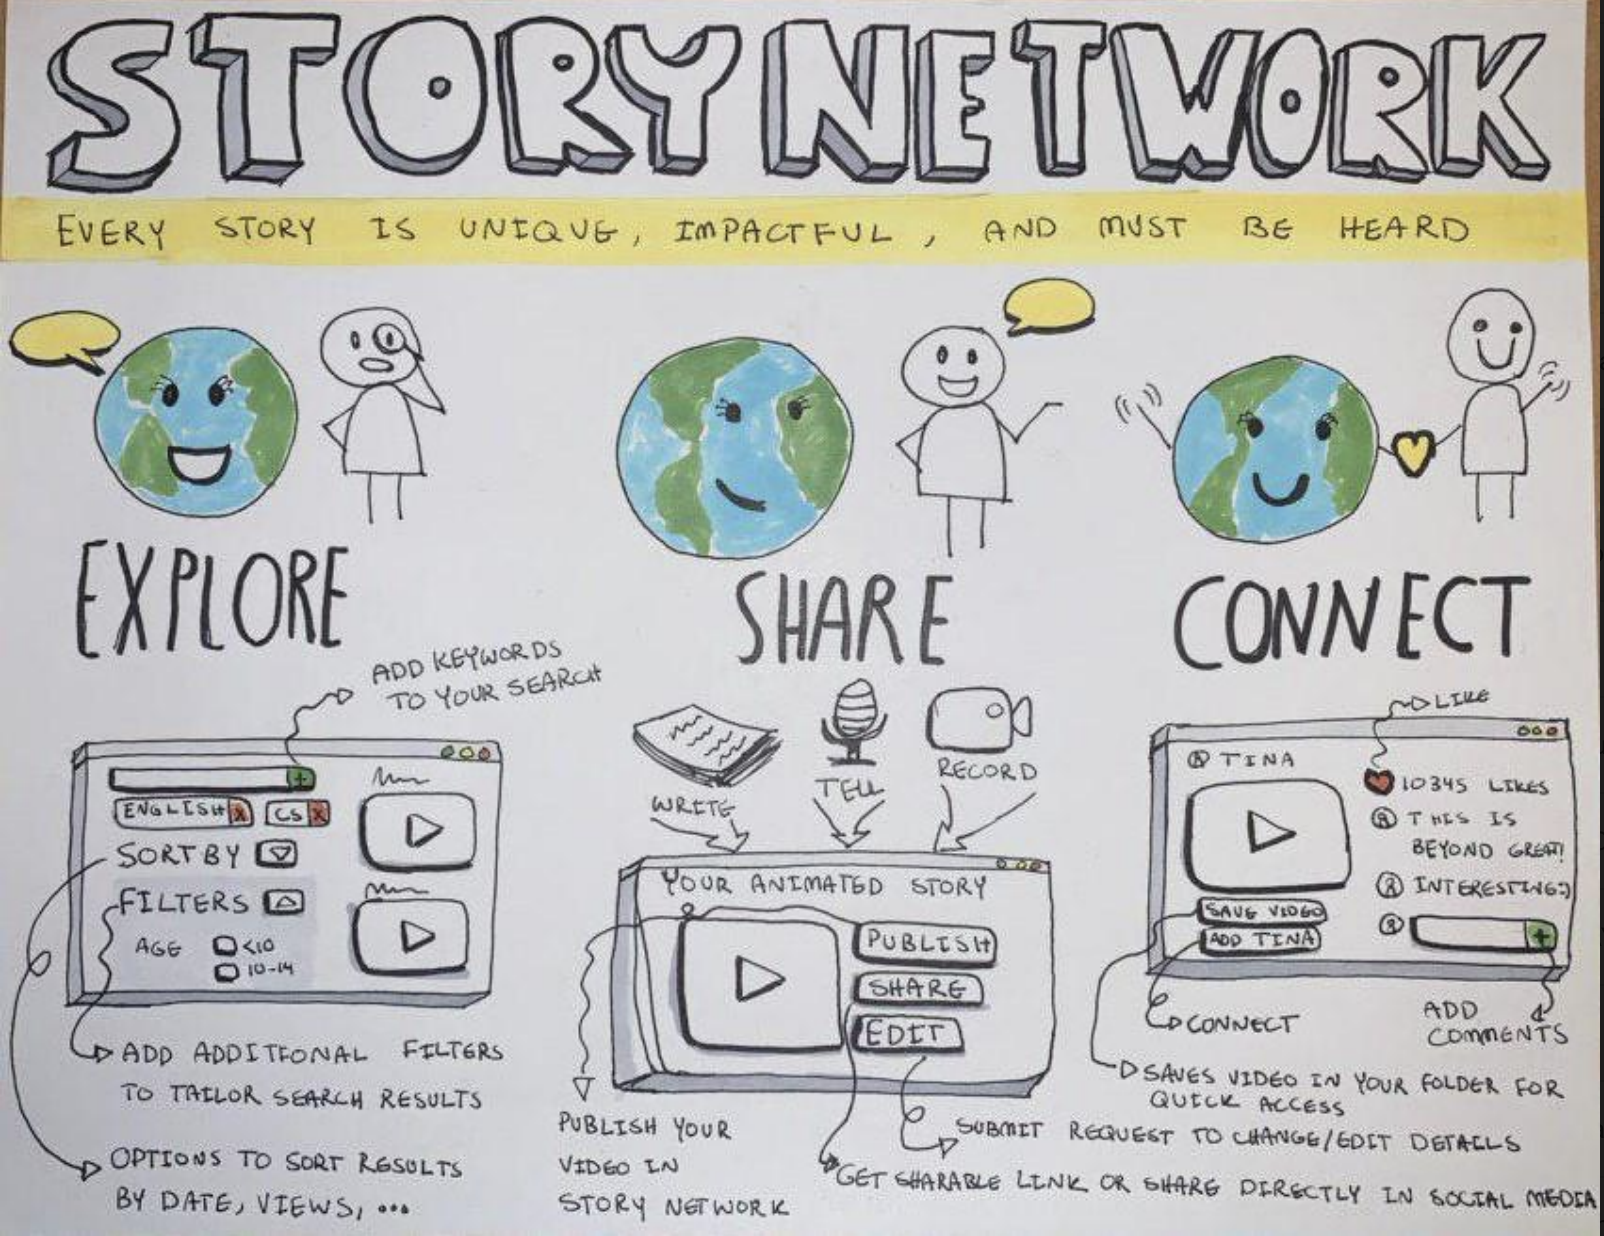 STORY NETWORK
EVERY STORY IS UNIQUE, IMPACTFUL, AND MUST BE HEARD
EXPLORE
ADD KEYWORDS
TO YOUR SEARCH
+
ENGLISH X CS X
SORT BY
FILTERS
AGE <10
10-14
ADD ADDITIONAL FILTERS
TO TAILOR SEARCH RESULTS
OPTIONS TO SORT RESULTS
BY DATE, VIEWS, ...
SHARE
WRITE
TELL
RECORD
YOUR ANIMATED STORY
PUBLISH
SHARE
EDIT
PUBLISH YOUR
VIDEO IN
STORY NETWORK
SUBMIT REQUEST TO CHANGE/EDIT DETAILS
GET SHARABLE LINK OR SHARE DIRECTLY IN SOCIAL MEDIA
CONNECT
LIKE
TINA
10345 LIKES
THIS IS
BEYOND GREAT!
INTERESTING:)
SAVE VIDEO
ADD TINA
+
CONNECT
ADD
COMMENTS
SAVES VIDEO IN YOUR FOLDER FOR
QUICK ACCESS